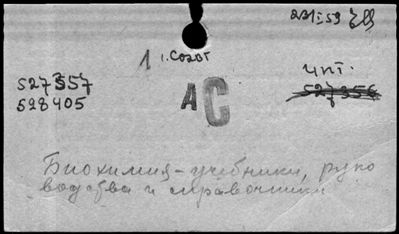 1
527357
528405
чит.
527356
АС
Биохимия - учебники, руко
водства и справочники